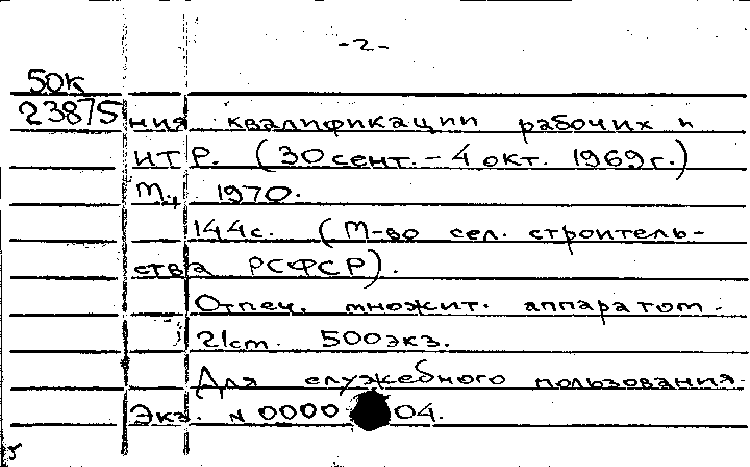 -2-
50к
23875
ния квалификации рабочих и
ИТР. (30 сент. - 4 окт. 1969 г.)
М., 1970.
144 с. (М-во сел. строитель-
ства РСФСР).
Отпеч. множит. аппаратом.
21 см. 500 экз.
Для служебного пользования.
Экз. N 0000 04.